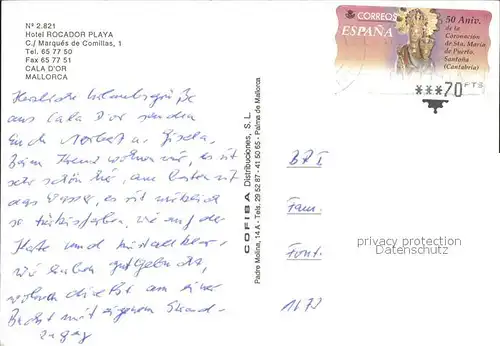 Nº 2.821
Hotel ROCADOR PLAYA
C./ Marqués de Comillas, 1
Tel. 65 77 50
Fax 65 77 51
CALA D'OR
MALLORCA
Herzliche Urlaubsgrüße
aus Cala D'or senden
Euch Norbert u. Gisela.
wohnen wir, es ist
sehr schön hier, am besten ist
das Wasser, es ist wirklich
so türkisfarben, wie auf der
Karte und kristallklar.
wir haben gut
wohnen direkt an einer
Bucht mit eigenem Strand-
zugang
COFIBA Distribuciones, S. L.
Padre Molina, 14 A - Tels. 29 52 87 - 41 50 65 - Palma de Mallorca
CORREOS
ESPAÑA
50 Aniv.
de la
Coronacion
de Sta. Maria
de Puerto.
Santoña
(Cantabria)
***70 PTS
Fam.
Font.
privacy protection
Datenschutz